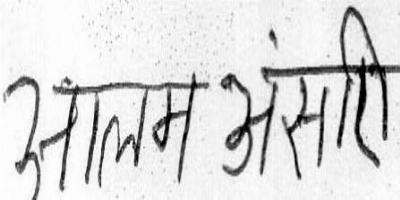 आलम अंसारी